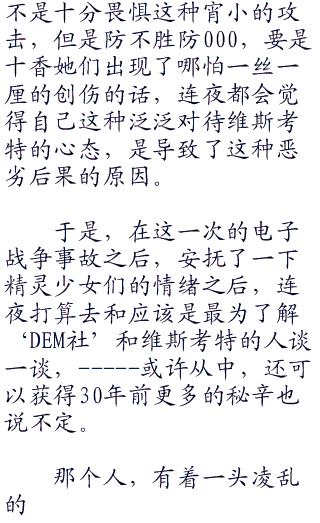 不是十分畏惧这种宵小的攻
击，但是防不胜防000，要是
十香她们出现了哪怕一丝一
厘的创伤的话，连夜都会觉
得自己这种泛泛对待维斯考
特的心态，是导致了这种恶
劣后果的原因。
于是，在这一次的电子
战争事故之后，安抚了一下
精灵少女们的情绪之后，连
夜打算去和应该是最为了解
‘DEM社’和维斯考特的人谈
一谈，-----或许从中，还可
以获得30年前更多的秘辛也
说不定。
那个人，有着一头凌乱
的